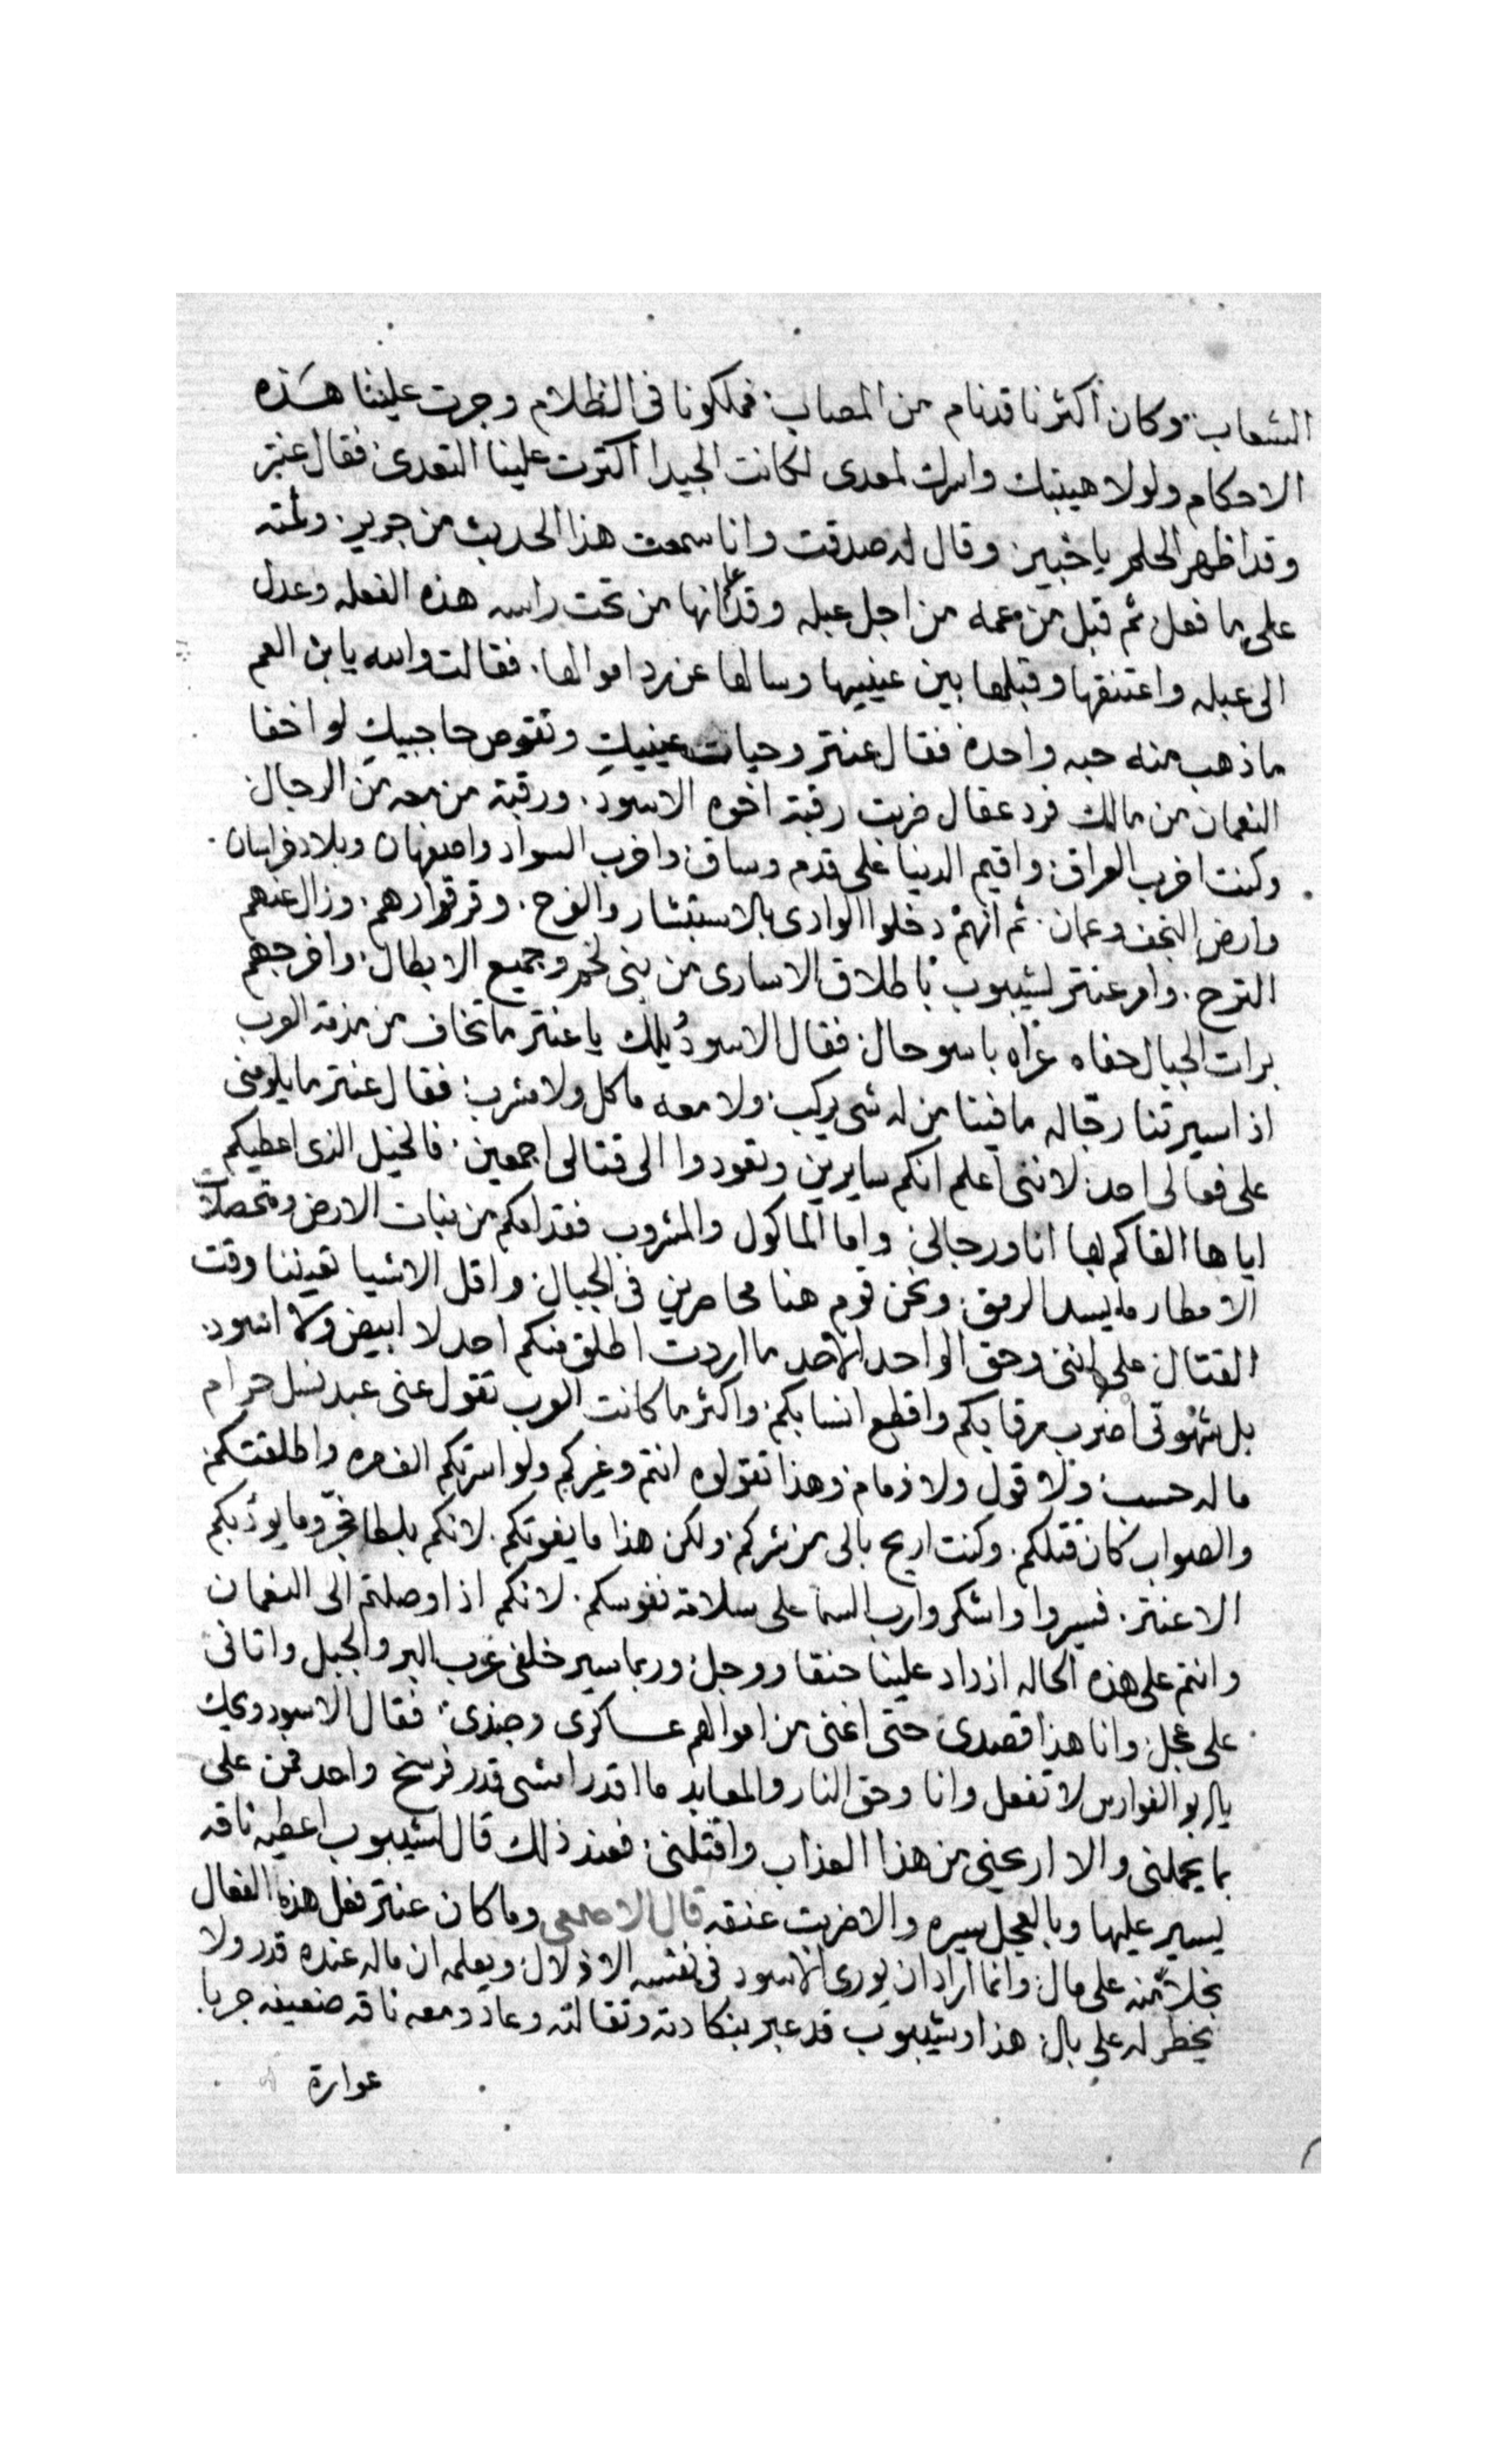 الشعاب وكان اكثرنا قدنام من المصاب فملكونا فى الظلام وجرت علينا هذه
الاحكام ولولا هيبتك واسرك لمعدى لكانت الجيدا اكثرت علينا التعدى فقال عنتر
وقد اظهر الحلم يا خبير وقال له صدقت وانا سمعت هذا الحديث من جرير ولمته
على ما فعل ثم قبل من عمه من اجل عبله وقد علم انها من تحت راسه هذه الفعله وعدل
الى عبله واعتنقها وقبلها بين عينيها وسالها عن رد اموالها فقالت والله يا بن العم
ما ذهب منه حبه واحده فقال عنتر وحيات عينيكِ وتقوص حاجبيكِ لو اخفا
النعمان من مالك فرد عقال ضربت رقبة اخوه الاسود ورقبة من معه من الرجال
وكنت اخرب العراق واقيم الدنيا على قدم وساق واخرب السواد واصفهان وبلاد خراسان
وارض النجف وعمان ثم انهم دخلوا الوادى بالاستبشار والفرح وقر قرارهم وزال عنهم
الترح وامر عنتر لشيبوب باطلاق الاسارى من بنى لخم وجميع الابطال واخرجهم
برات الجبال حفاه عراه باسو حال فقال الاسود يلك يا عنتر ما تخاف من مذمة العرب
اذا سيرتنا رجاله ما فينا من له شى يركب ولا معه ماكل ولا مشرب فقال عنتر ما يلومنى
على فعالى احد لاننى اعلم انكم سايرين وتعودوا الى قتالى اجمعين فالخيل الذى اعطيكم
اياها القاكم بها انا ورجالى واما الماكول والمشروب فقدامكم من نبات الارض ومتحصلات
الامطار ما يسد الرمق ونحن قوم هنا محاصرين فى الجبال واقل الاشيا تعيننا وقت
القتال على اننى وحق الواحد الاحد ما اردت اطلق منكم احد لا ابيض ولا اسود
بل شهوتى اضرب رقابكم واقطع انسابكم واكثر ما كانت العرب تقول عنى عبد نسل حرام
ما له حسب ولا قول ولا ذمام وهذا تقولوه انتم وغيركم ولو اسرتكم الف مره واطلقتكم
والصواب كان قتلكم وكنت اريح بالى من شركم ولكن هذا ما يفوتكم لانكم وما يودبكم
الا عنتر فسيروا واشكروا رب السما على سلامة نفوسكم لانكم اذا وصلتم الى النعمان
وانتم على هذه الحاله ازداد علينا حنقا ووجل وربما سير خلفى عرب البر والجبل واتانى
على عجل وانا هذا قصدى حتى اغنى من اموالهم عساكرى وجندى فقال الاسود ويحك
يا ابو الفوارس لا تفعل وانا وحق النار والمعابد ما اقدر امشى قدر فرسخ واحد فمن على
بما يحملنى والا ارحينى من هذا العذاب واقتلنى فعند ذلك قال لشيبوب اعطيه ناقه
يسير عليها وبالعجل سيره والا ضربت عنقه قال الاصمعى وما كان عنتر فعل هذه الفعال
بخلا منه على مال وانما اراد ان يورى الاسود فى نفسه الاذلال ويعلمه ان ماله عنده قدر ولا
يخطر له على بال هذا وشيبوب قد عبر بنكادته وثقالته وعاد ومعه ناقه ضعيفه جربا
عوارة